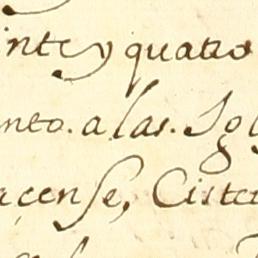 inte y quatro
nto. a las. Igl
acense, Cister